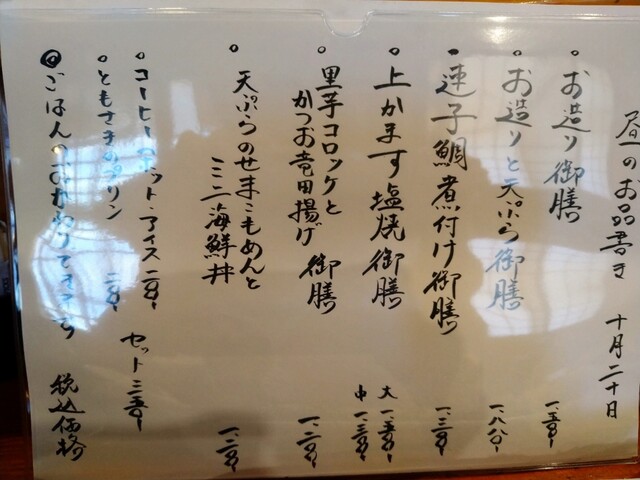 昼のお品書き 十月二十日
。お造り御膳 一、五〇〇-
。お造りと天ぷら御膳 一、八〇〇-
。連子鯛煮付け御膳 一、三〇〇-
。上かます塩焼御膳 大 一、五〇〇-
中 一、三〇〇-
。里芋コロッケと
かつお竜田揚げ 御膳 一、二〇〇-
。天ぷらのせ
ミニ海鮮丼 一、二〇〇-
。コーヒー ホット・アイス 二〇〇- セット 三五〇-
。ともさまのプリン 二〇〇-
◎ごはんのおかわりできます 税込価格